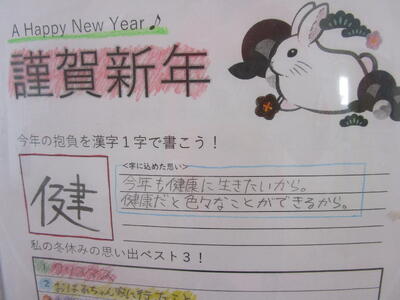 A Happy New Year♪
謹賀新年
今年の抱負を漢字1字で書こう！
<字に込めた思い>
健
今年も健康に生きたいから。
健康だと色々なことができるから。
私の冬休みの思い出ベスト3！
1 クリスマス
2 おばあちゃん家に行ったこと